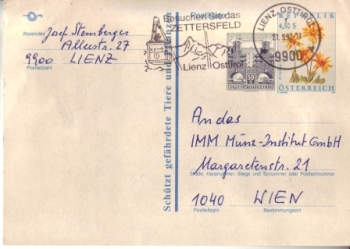 Besuchen Sie das
ZETTERSFELD
Lienz Osttirol
LIENZ, OSTTIROL
9900
REPUBLIK
4,50 S
ÖSTERREICH
REPUBLIK ÖSTERREICH
Absender
Josef Stemberger
Alleestr. 27
9900 LIENZ
Postleitzahl
Schützt gefährdete Tiere und
An das
IMM Münz-Institut GmbH
Margaretenstr. 21
Straße, Hausnummer, Stiege und Türnummer oder Postfachnummer
1040 WIEN
Postleitzahl Bestimmungsort